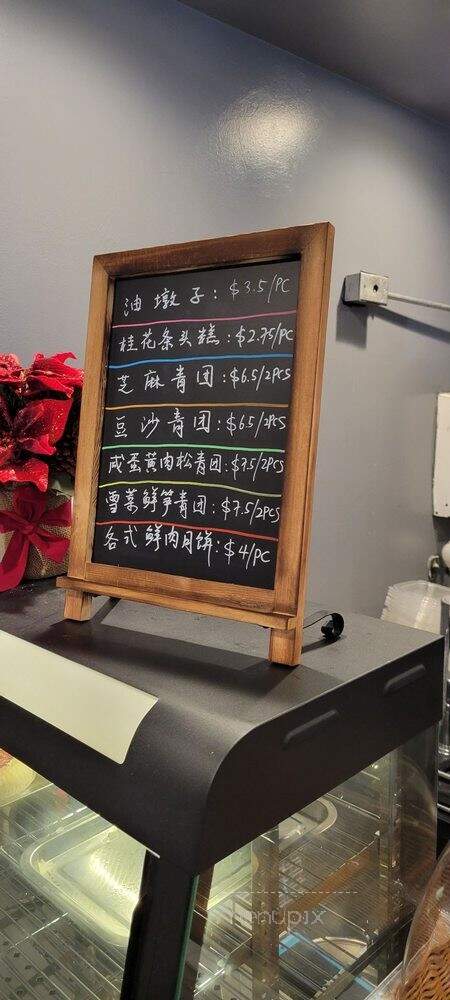 油墩子: $3.5/PC
桂花条头糕: $2.75/PC
芝麻青团: $6.5/2PCS
豆沙青团: $6.5/2PCS
咸蛋黄肉松青团: $7.5/2PCS
雪菜鲜笋青团: $7.5/2PCS
各式鲜肉月饼: $4/PC
menupix